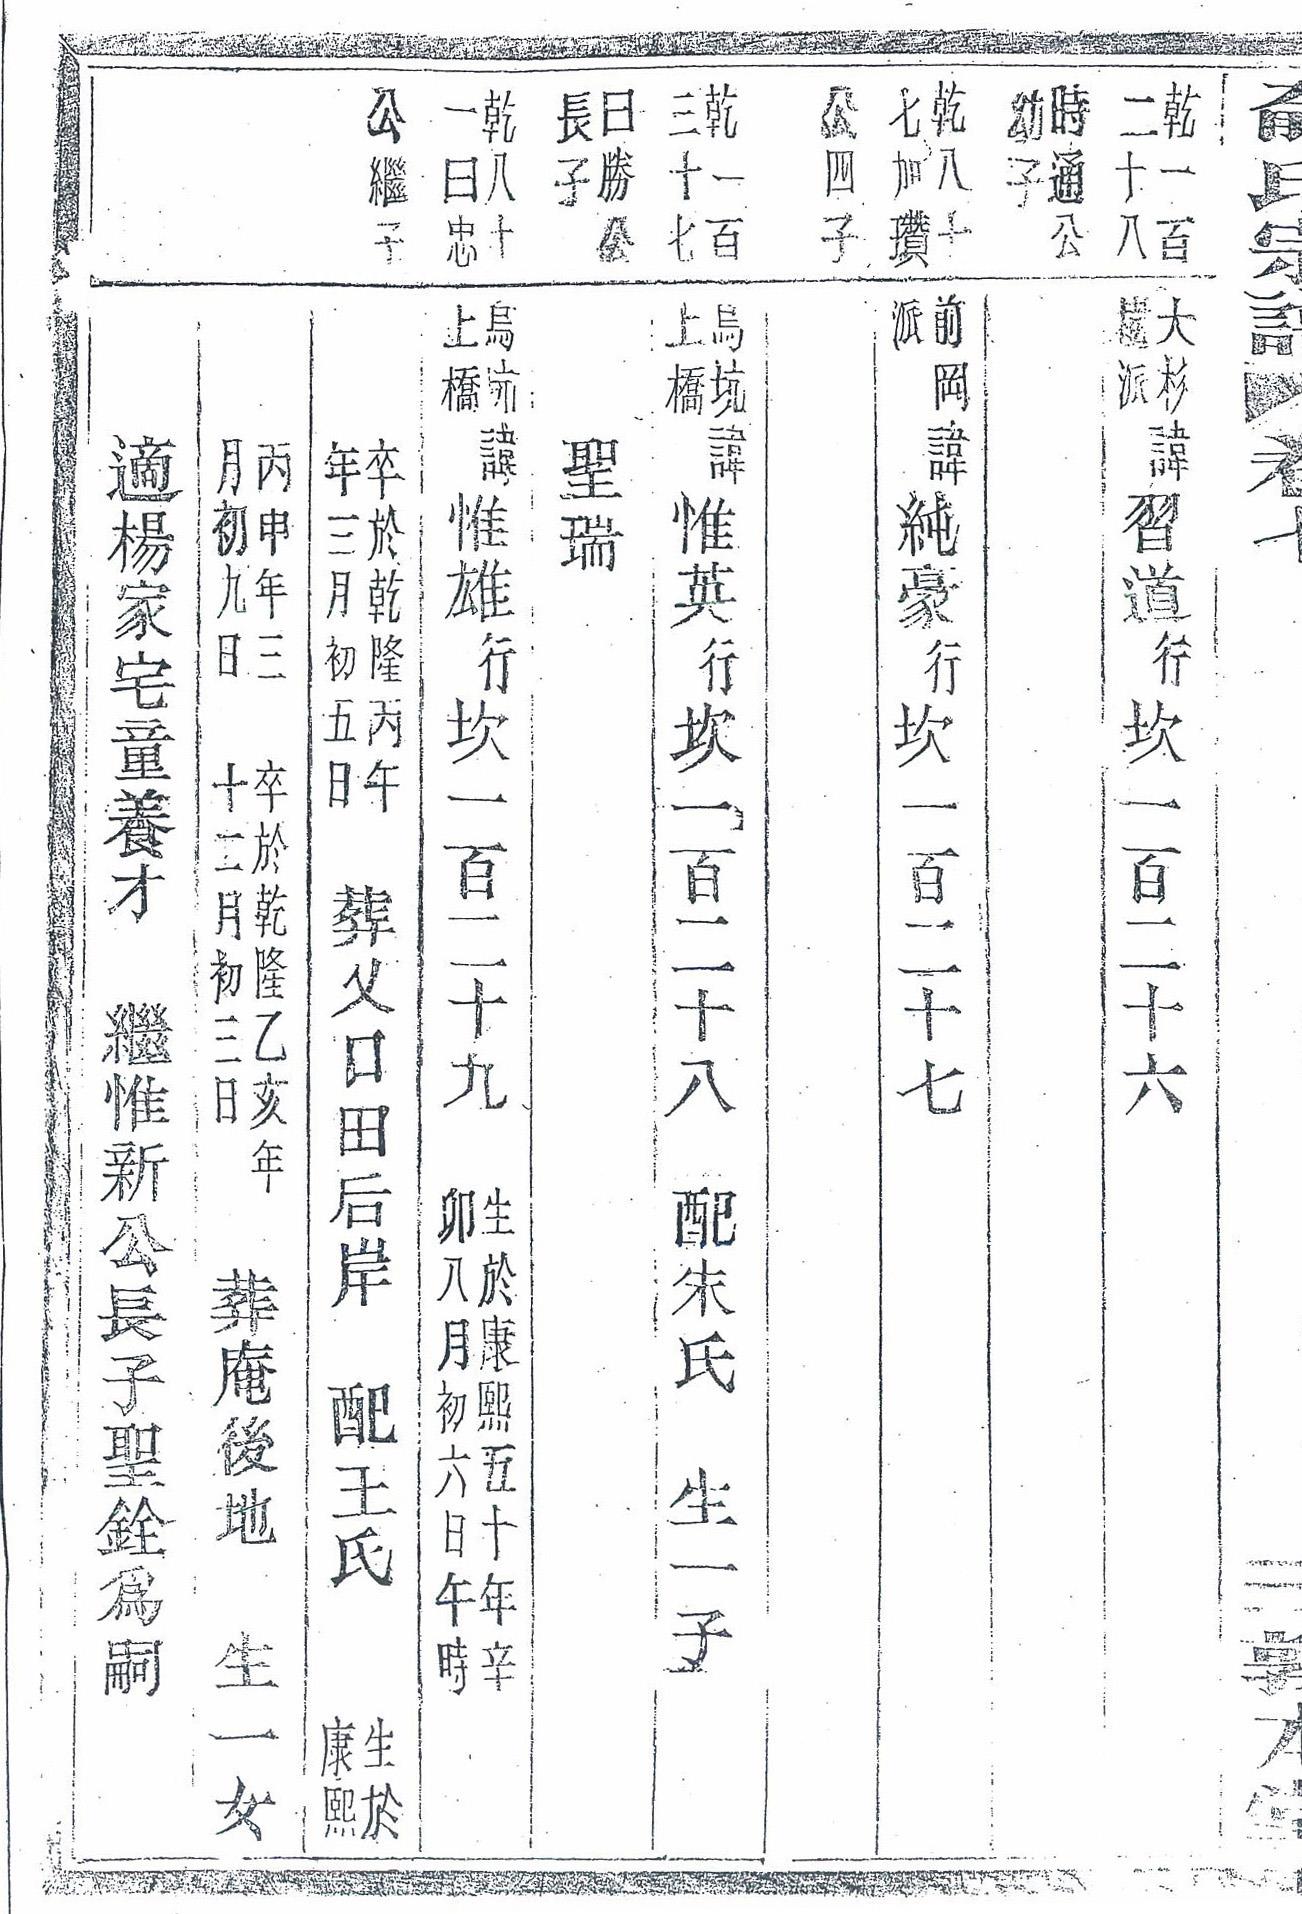 氏宗譜 卷七
乾一百二十八時通公幼子
大杉派 諱習道行坎一百二十六
乾八十七加瓚公四子
前岡派 諱純豪行坎一百二十七
乾一百三十七曰勝公長子
烏坑上橋 諱惟英行坎一百二十八 配朱氏 生一子
聖瑞
乾八十一曰忠公繼子
烏坑上橋 諱惟雄行坎一百二十九 生於康熙五十年辛卯八月初六日午時
卒於乾隆丙午年三月初五日 葬父口田后岸 配王氏 生於康熙
丙申年三月初九日 卒於乾隆乙亥年十二月初三日 葬庵後地 生一女
適楊家宅童養才 繼惟新公長子聖銓為嗣